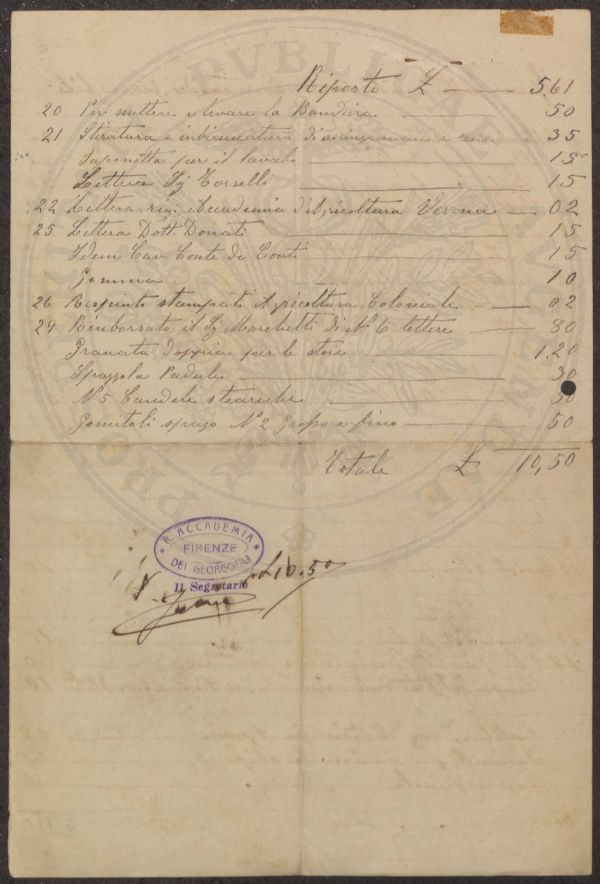 Riporto £ 5.61
20 Per mettere e levare la Bandiera 50
21 Stiratura e imbiancatura d'asciugamani e 35
Saponetta per il lavabo 15
Lettera Sg Torselli 15
22 Lettera Accademia d'Agricoltura Verona 02
25 Lettera Dott. Donati 15
Idem Cav. Conte de Conti 15
Gomma 10
26 Respinto stampati Agricoltura Coloniale 02
29 Rimborsato il Sg Marchetti di N° 6 lettere 80
Granata doppia per le stoie 1.20
Spazzola Padule 30
N° 5 Candele steariche 50
Gomitoli spago N° 2 Grosso e fino 50
Totale £ 10,50
R. ACCADEMIA
FIRENZE
DEI GEORGOFILI
Il Segretario
£ 10.50